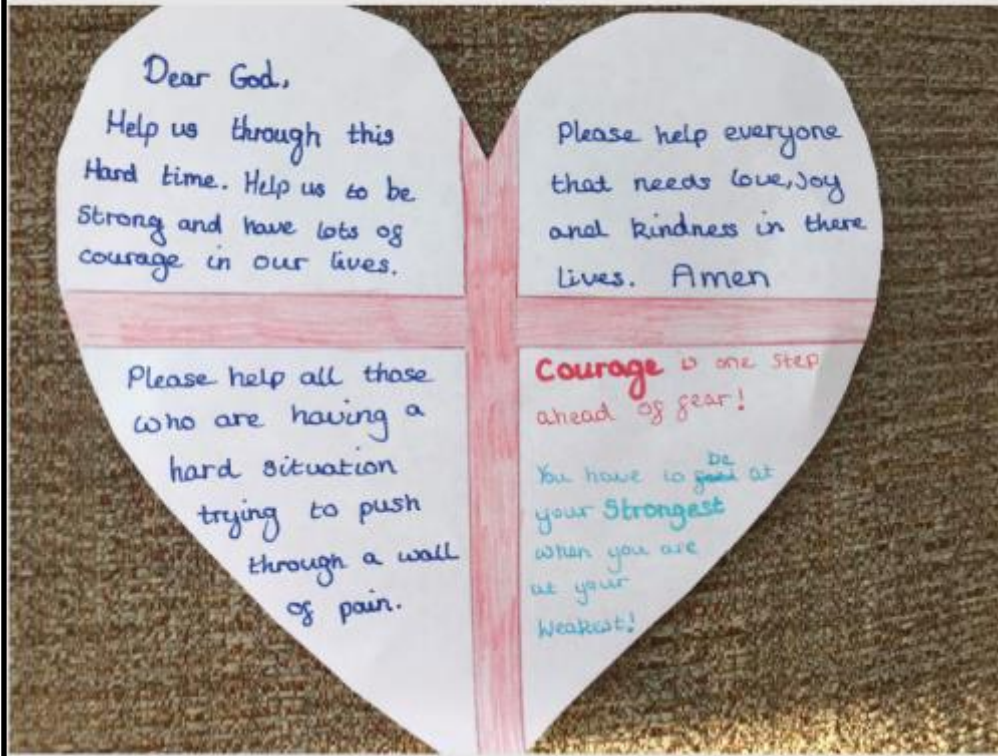 Dear God,
Help us through this
Hard time. Help us to be
Strong and have lots of
courage in our lives.
Please help everyone
that needs love, Joy
and kindness in there
lives. Amen
Please help all those
who are having a
hard situation
trying to push
through a wall
of pain.
Courage is one step
ahead of fear!
You have to be at
your Strongest
when you are
at your
Weakest!